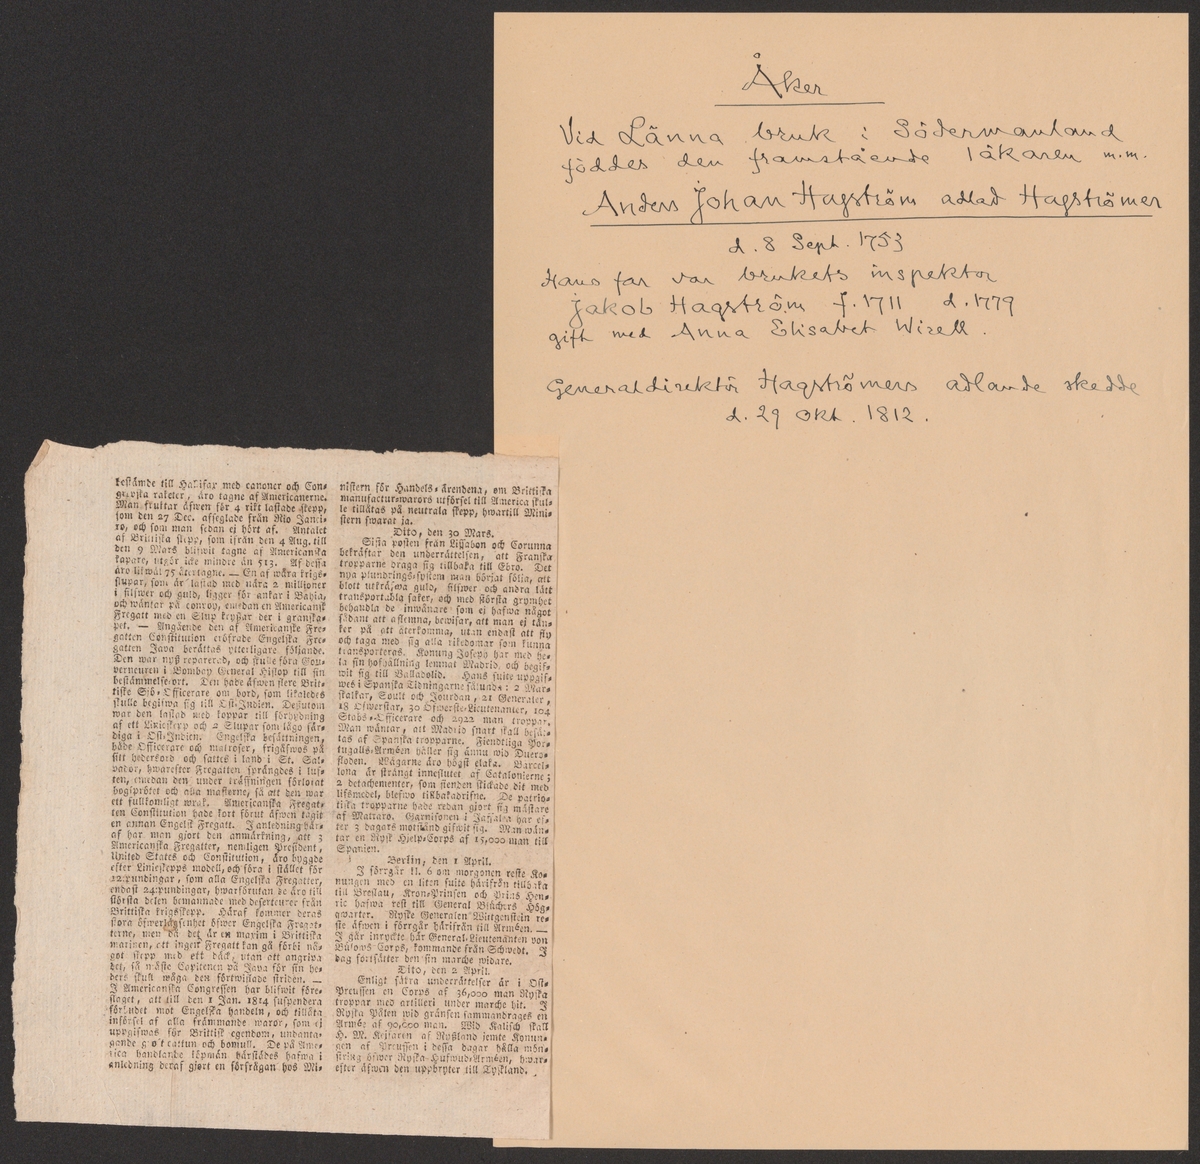 Åker
Vid Länna bruk i Södermanland
föddes den framstående läkaren m.m.
Anders Johan Hagström adlad Hagströmer
d. 8 Sept. 1753
Hans far var brukets inspektor
Jakob Hagström f. 1711 d. 1779
gift med Anna Elisabet Wirell.
Generaldirektör Hagströmers adlande skedde
d. 29 Okt. 1812.
bestämde till Halifax med canoner och Con-
grevska raketer, äro tagne af Americanerne.
Man fruktar äfwen för 4 rikt lastade skepp,
som den 27 Dec. afseglade från Rio Janei-
ro, och som man sedan ej hört af. Antalet
af Brittiska skepp, som ifrån den 4 Aug. till
den 9 Mars blifwit tagne af Americanska
kapare, utgör icke mindre än 513. Af dessa
äro likwäl 75 återtagne. — En af wåra krigs-
slupar, som är lastad med nära 2 millioner
i silfwer och guld, ligger för ankar i Bahia,
och wäntar på convoy, emedan en Americansk
Fregatt med en Slup kryßar der i granska-
pet. — Angående den af Americanske Fre-
gatten Constitution eröfrade Engelska Fre-
gatten Java berättas ytterligare följande.
Den war nyß reparerad, och skulle föra Gou-
verneuren i Bombay General Hislop till sin
bestämmelseort. Den hade äfwen flere Brit-
tiske Sjö-Officerare om bord, som likaledes
skulle begifwa sig till Ost-Indien. Deßutom
war den lastad med koppar till förhydning
af ett Linieskepp och 2 Slupar som lågo fär-
diga i Ost-Indien. Engelska besättningen,
både Officerare och matroser, frigafwos på
sitt hedersord och sattes i land i St. Sal-
vador, hwarefter Fregatten sprängdes i luf-
ten, emedan den under träffningen förlorat
bogsprötet och alla masterne, så att den war
ett fullkomligt wrak. Americanska Fregat-
ten Constitution hade kort förut äfwen tagit
en annan Engelsk Fregatt. I anledning här-
af har man gjort den anmärkning, att 3
Americanska Fregatter, nemligen President,
United States och Constitution, äro byggde
efter Linieskepps modell, och föra i stället för
12:pundingar, som alla Engelska Fregatter,
endast 24:pundingar, hwarförutan de äro till
största delen bemannade med deserteurer från
Brittiska krigsskepp. Häraf kommer deras
stora öfwerlägsenhet öfwer Engelska Fregat-
terne, men då det är en maxim i Brittiska
marinen, att ingen Fregatt kan gå förbi nå-
got skepp med ett däck, utan att angripa
det, så måste Capitenen på Java för sin he-
ders skull wåga den förtwiflade striden. —
I Americanska Congressen har blifwit före-
slaget, att till den 1 Jan. 1814 suspendera
förbudet mot Engelska handeln, och tillåta
införsel af alla främmande waror, som ej
uppgifwas för Brittisk egendom, undanta-
gande groft cattun och bomull. De på Ame-
rica handlande köpmän härstädes hafwa i
anledning deraf gjort en förfrågan hos Mi-
nistern för Handels-ärendena, om Brittiska
manufactur-warors utförsel till America skul-
le tillåtas på neutrala skepp, hwartill Mini-
stern swarat ja.
Dito, den 30 Mars.
Sista posten från Lissabon och Corunna
bekräftar den underrättelsen, att Franska
tropparne draga sig tillbaka till Ebro. Det
nya plundrings-system man börjat följa, att
blott utkräfwa guld, silfwer och andra lätt
transportabla saker, och med största grymhet
behandla de inwånare som ej hafwa något
sådant att aflemna, bewisar, att man ej tän-
ker på att återkomma, utan endast att fly
och taga med sig alla rikedomar som kunna
transporteras. Konung Joseph har med he-
la sin hofhållning lemnat Madrid, och begif-
wit sig till Valladolid. Hans suite uppgif-
wes i Spanska Tidningarne sålunda: 2 Mar-
skalkar, Soult och Jourdan, 21 Generaler,
18 Öfwerstar, 30 Öfwerste-Lieutenanter, 104
Stabs-Officerare och 2922 man troppar.
Man wäntar, att Madrid snart skall besät-
tas af Spanska tropparne. Fiendtliga Por-
tugalls-Arméen håller sig ännu wid Duero-
floden. Wägarne äro högst elaka. Barcel-
lona är strängt inneslutet af Catalonierne;
2 detachementer, som fienden skickade dit med
lifsmedel, blefwo tillbakadrifne. De patrio-
tiska tropparne hade redan gjort sig mästare
af Mattaro. Garnisonen i Jassalva har ef-
ter 3 dagars motstånd gifwit sig. Man wän-
tar en Rysk Hjelp-Corps af 15,000 man till
Spanien.
Berlin, den 1 April.
I förrgår kl. 6 om morgonen reste Ko-
nungen med en liten suite härifrån tillbaka
till Breslau, Kron-Prinsen och Prins Hen-
ric hafwa rest till General Blüchers Hög-
qwarter. Ryske Generalen Wittgenstein re-
ste äfwen i förrgår härifrån till Arméen. —
I går inryckte här General-Lieutenanten von
Bülows Corps, kommande från Schwedt. I
dag fortsätter den sin marche widare.
Dito, den 2 April.
Enligt säkra underrättelser är i Ost-
Preussen en Corps af 36,000 man Ryska
troppar med artilleri under marche hit. I
Ryska Pålen wid gränsen sammandrages en
Armée af 90,000 man. Wid Kalisch skall
H. M. Kejsaren af Ryßland jemte Konun-
gen af Preussen i dessa dagar hålla mön-
string öfwer Ryska Hufwud-Arméen, hwar-
efter äfwen den uppbryter till Tyskland.